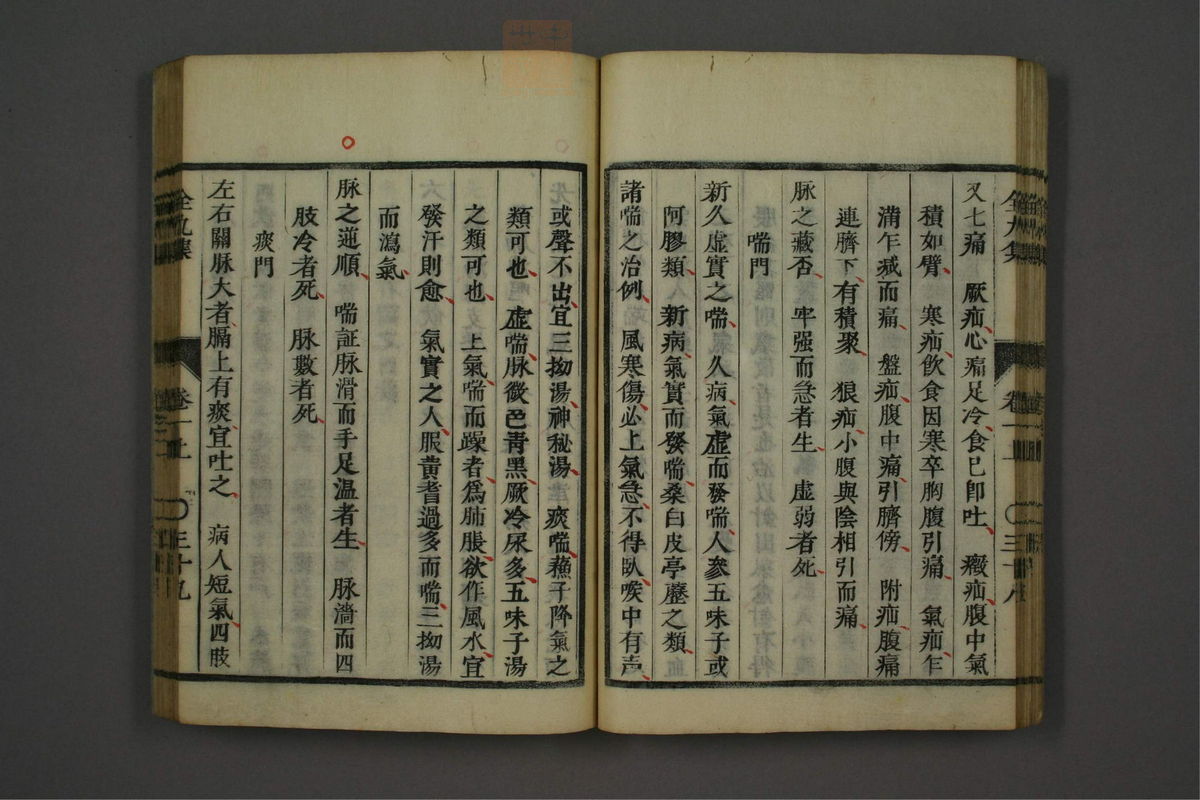 又七痛 厥疝心痛足冷食已卽吐 癥疝腹中氣
積如臂 寒疝飲食因寒卒胸腹引痛 氣疝乍
滿乍减而痛 盤疝腹中痛引臍傍 附疝腹痛
連臍下有積聚 狼疝小腹與陰相引而痛
脉之藏否 牢强而急者生 虛弱者死
喘門
新久虛實之喘 久病氣虛而發喘人參五味子或
阿膠類 新病氣實而發喘桑白皮亭藶之類
諸喘之治例 風寒傷必上氣急不得臥喉中有声
全九集 卷一上 三十八
或聲不出宜三拗湯神秘湯 痰喘蘓子降氣之
類可也 虛喘脉微色靑黑厥冷尿多五味子湯
之類可也 上氣喘而躁者爲肺脹欲作風水宜
發汗則愈 氣實之人服黄耆過多而喘三拗湯
而瀉氣
脉之逆順 喘証脉滑而手足温者生 脉濇而四
肢冷者死 脉數者死
痰門
左右關脉大者膈上有痰宜吐之 病人短氣四肢
全九集 卷一上 三十九